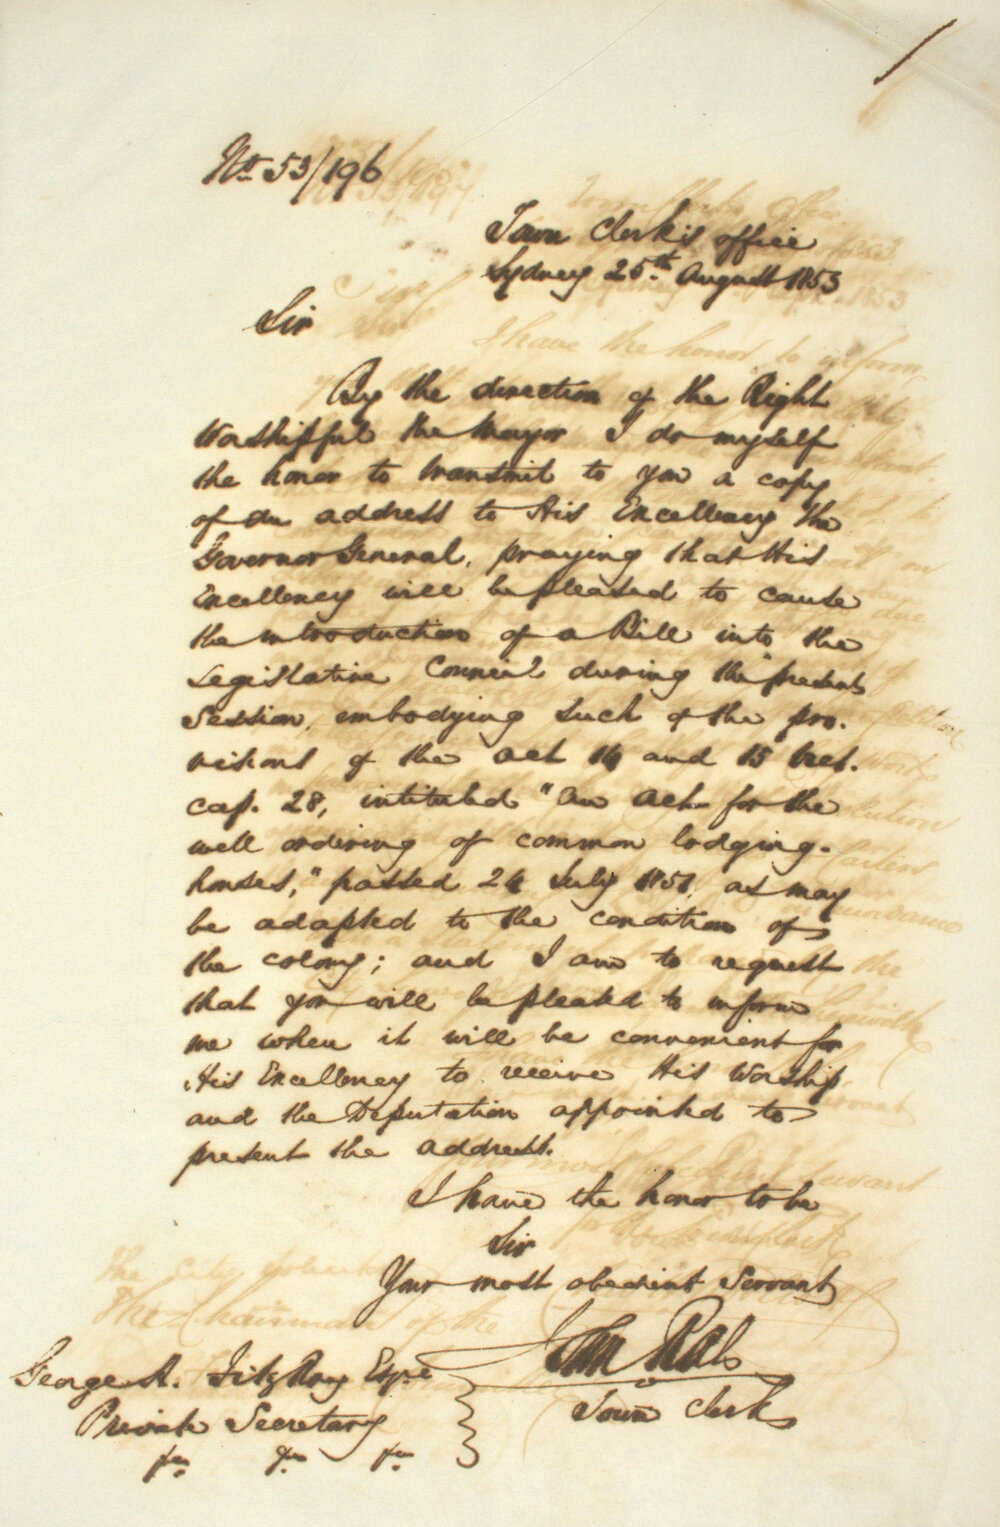 No. 53/196
Town Clerk's office
Sydney 25th August 1853
Sir
By the direction of the Right
Worshipful the Mayor I do myself
the honor to transmit to you a copy
of an address to His Excellency the
Governor General, praying that His
Excellency will be pleased to cause
the introduction of a Bill into the
Legislative Council during the present
Session, embodying such of the pro-
visions of the act 14 and 15 Vict.
cap. 28, intituled "An Act for the
well ordering of common lodging-
houses," passed 24 July 1851, as may
be adapted to the condition of
the colony; and I am to request
that you will be pleased to inform
me when it will be convenient for
His Excellency to receive His Worship
and the Deputation appointed to
present the address.
I have the honor to be
Sir
Your most obedient Servant
John
Town Clerk
George A. FitzRoy Esqre
Private Secretary
&c &c &c